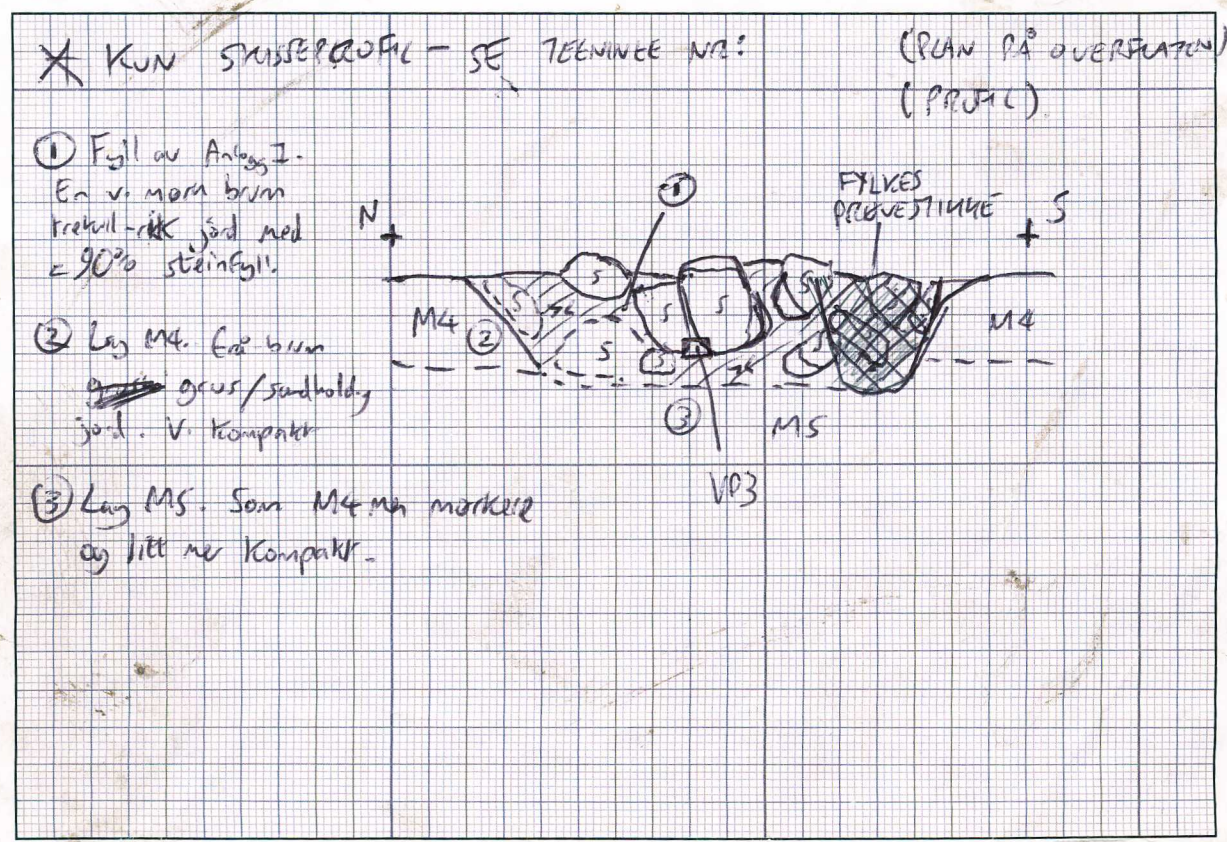 * KUN SKISSEPROFIL - SE TEGNINGE NR: (PLAN PÅ OVERFLATEN)
(PROFIL)
① Fyll av Anlegg I.
En v. mørk brun
trekull-rik jord med
= 90% steinfyll.
② Lag M4. Grå brun
grus/sandholdig
jord. V. Kompakt
③ Lag M5. Som M4 men mørkere
og litt mer Kompakt.
N
①
FYLKES
PRØVESTIKKE
S
M4
②
S
S
S
S
S
S
M4
③
M5
VP3